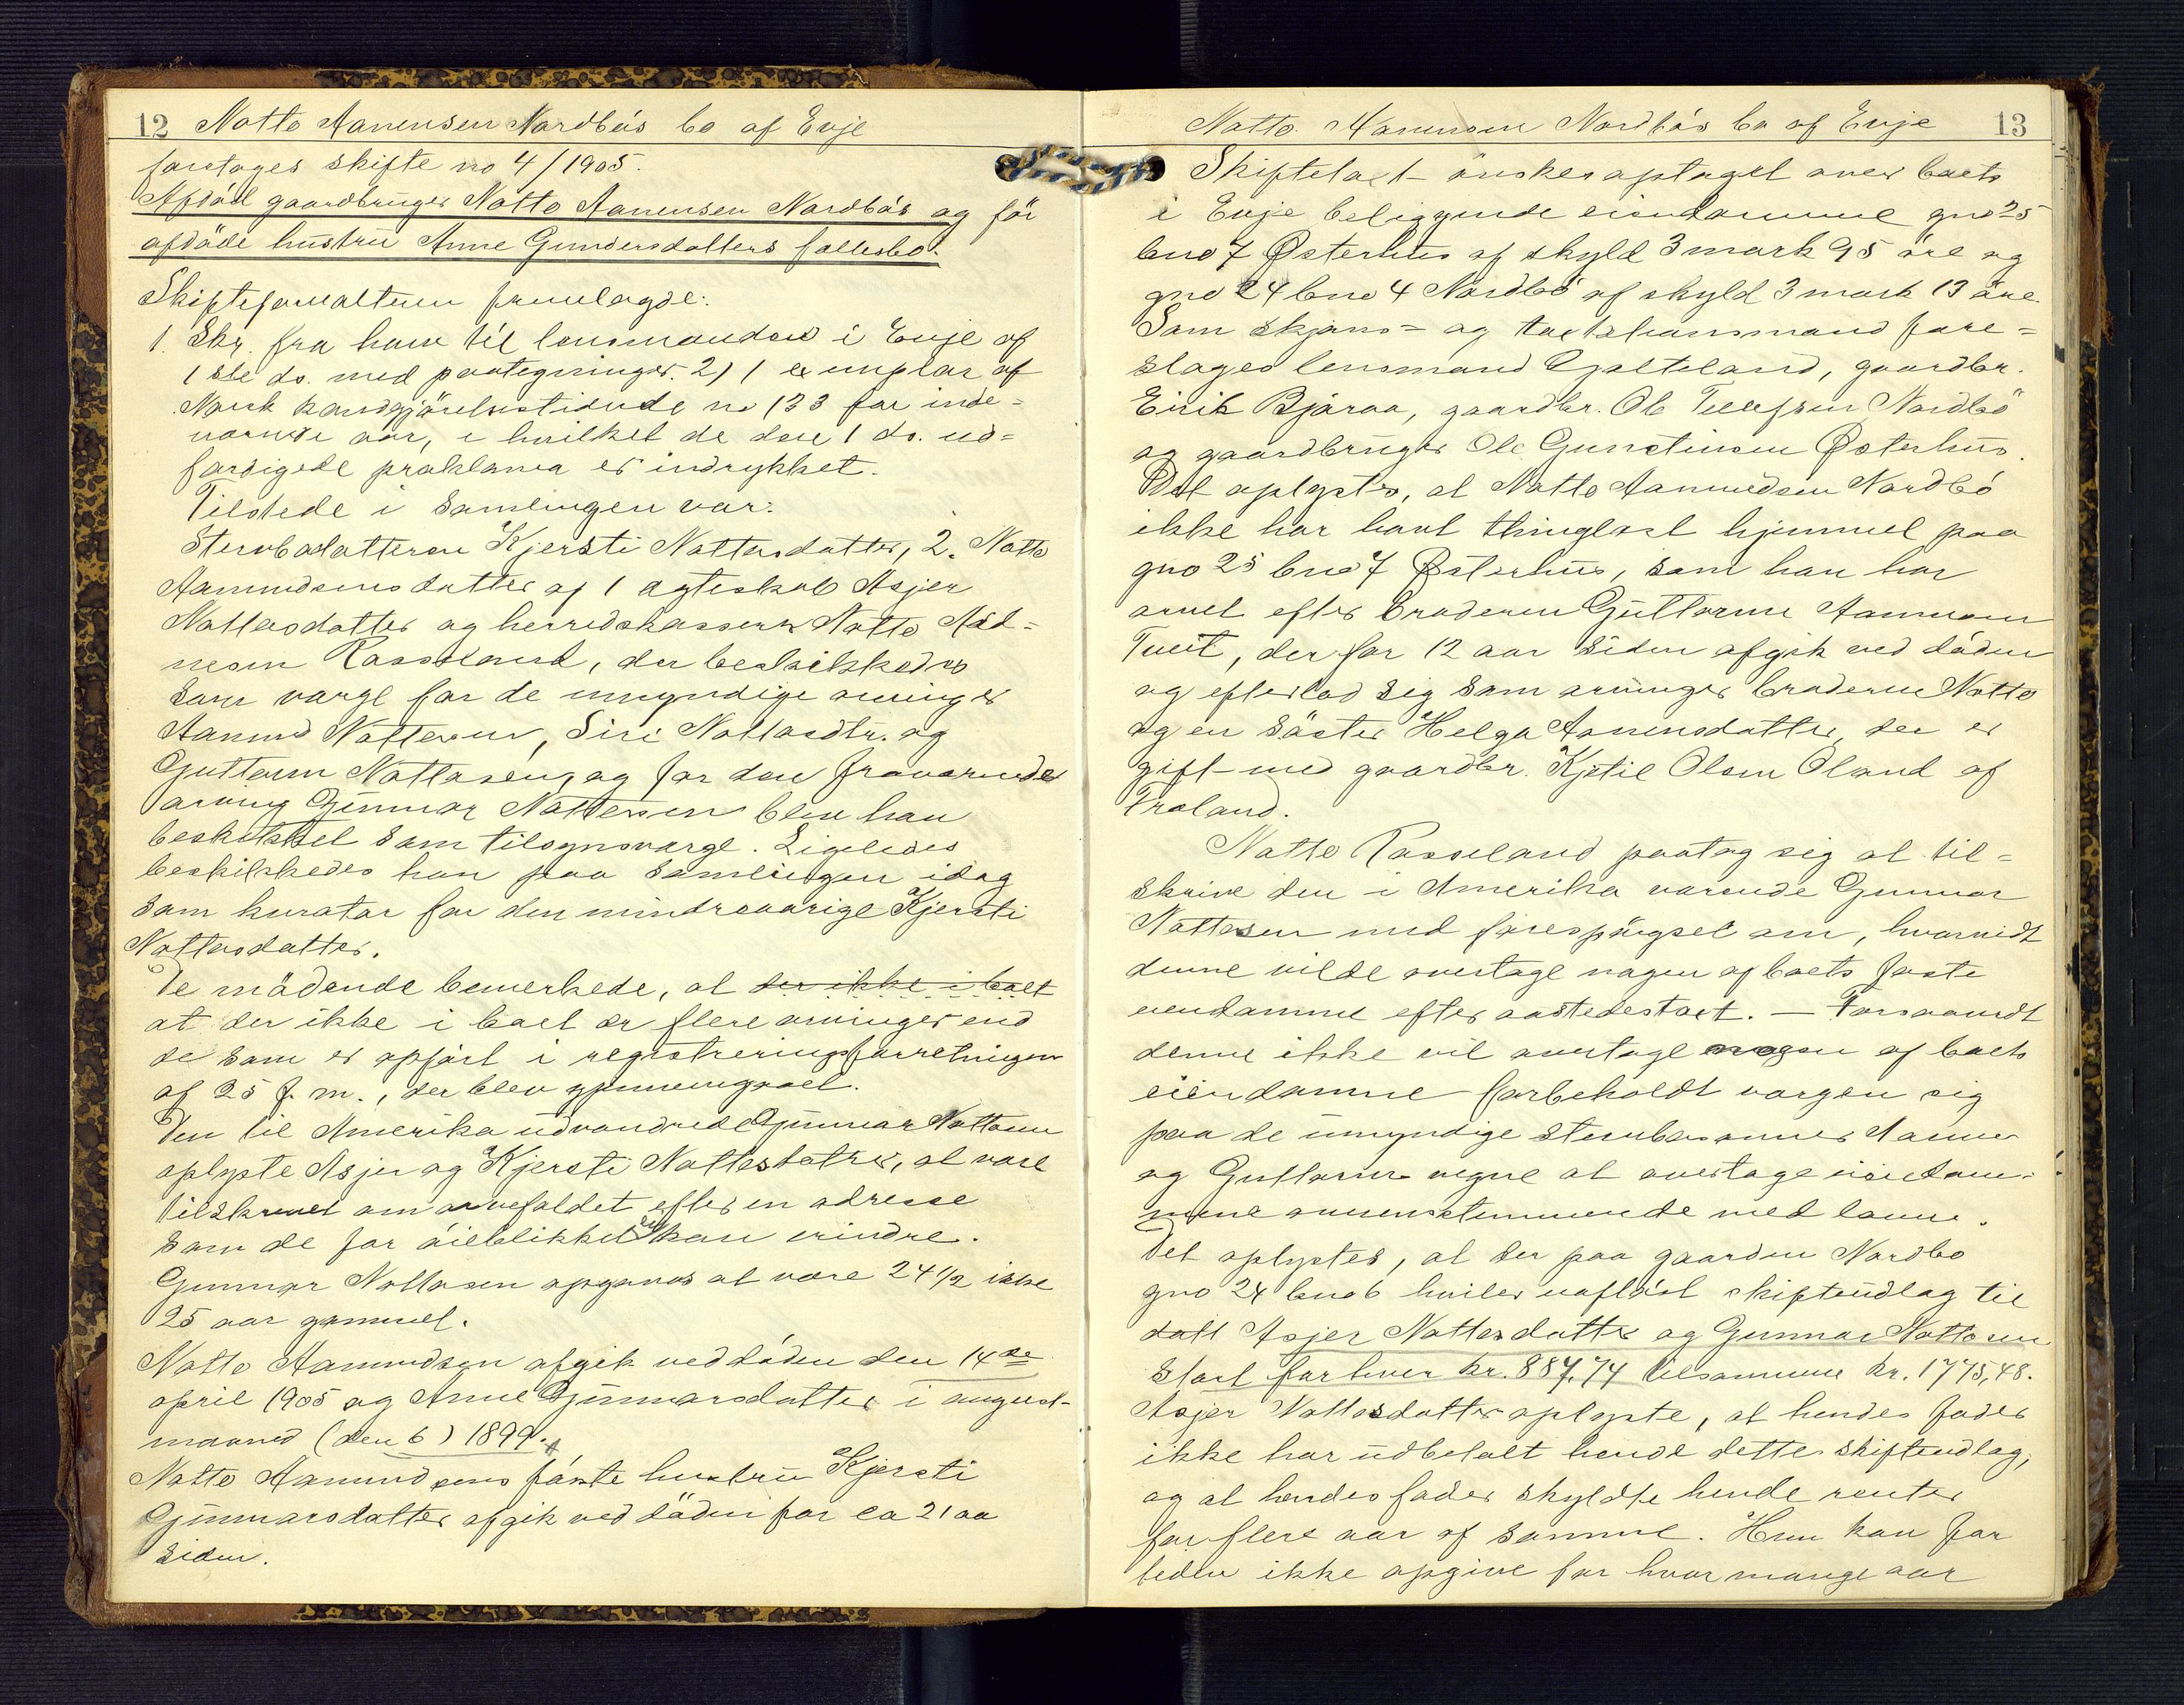 12 Natto Aanensen Nordbös bo af Evje
foretages skifte no 4/1905.
Afdöd gaardbruger Natto Aanensen Nordbös og för
afdöde hustru Anne Gundersdatters fællesbo.
Skifteforvalteren fremlagde:
1. Skr. fra ham til lensmanden i Evje af
1ste ds. med paategninger. 2) 1 exemplar af
Norsk kundgjörelsestidende no 133 for inde=
værende aar, i hvilket de den 1 ds. ud=
færdigede proklama er indrykket.
Tilstede i samlingen var:
Stervbodatteren Kjersti Nattesdatter, 2. Natto
Aamundsens datter af 1 ægteskab Asjer
Nattesdatter og herredskasserer Natto Aad=
nesen Rosseland, der beskikkedes
som værge for de umyndige arvinger
Aanund Nattesen, Siri Nattesdtr. og
Guttorm Nattesen, og for den fraværende
arving Gunnar Nattesen blev han
beskikket som tilsynsværge. Ligeledes
beskikkedes han paa samlingen idag
som kurator for den mindreaarige Kjersti
Nattesdatter.
De mödende bemerkede, at der ikke i boet
at der ikke i boet er flere arvinger end
de som er opfört i registreringsforretningen
af 25 f. m., der blev gjennemgaaet.
Den til Amerika udvandrede Gunnar Nattesen
oplyste Asjer og Kjersti Nattesdatter, at være
tilskrevet om arvefaldet efter en adresse
som de for öieblikket ei kan erindre.
Gunnar Nattesen opgaves at være 24 1/2 ikke
25 aar gammel.
Natto Aamundsen afgik ved döden den 14de
april 1905 og Anne Gunnarsdatter i august-
maaned (den 6) 1899.
Natto Aamundsens förste hustru Kjersti
Gunnarsdatter afgik ved döden for ca 21 aa
siden.
Natto Aanensen Nordbös bo af Evje 13
Skiftetaxt önskes optaget over boets
i Evje beliggende eiendomme gno 25
bno 7 Østerhus af skyld 3 mark 95 öre og
gno 24 bno 4 Nordbö af skyld 3 mark 13 öre.
Som skjöns= og taxtationsmænd fore=
slages lensmand Galteland, gaardbr.
Eirik Bjoraa, gaardbr. Ole Tellefsen Nordbö
og gaardbruger Ole Gunsteinsen Østerhus.
Det oplystes, at Natto Aanundsen Nordbö
ikke har havt thinglæst hjemmel paa
gno 25 bno 7 Østerhus, som han har
arvet efter broderen Guttorm Aanensen
Tveit, der for 12 aar siden afgik ved döden
og efterlod sig som arvinger broderen Natto
og en söster Helga Aanensdatter, der er
gift med gaardbr. Kjetil Olsen Oland af
Froland.
Natto Rosseland paatog sig at til=
skrive den i Amerika værende Gunnar
Nattesen med forespörgsel om, hvorvidt
denne vilde overtage nogen af boets faste
eiendomme efter aastedstaxt. — Forsaavidt
denne ikke vil overtage nogen af boets
eiendomme forbeholdt værgen sig
paa de umyndige stervbosönner Aanun
og Guttorms vegne at overtage eiendom=
mene overensstemmende med loven.
Det oplystes, at der paa gaarden Nordbö
gno 24 bno 6 hviler uaflöst skifteudlæg til
datt Asjer Nattesdatter og Gunnar Nattesen
stort for hver kr. 887,74 tilsammen kr. 1775,48.
Asjer Nattesdatter oplyste, at hendes fader
ikke har udbetalt hende dette skifteudlæg,
og at hendes fader skyldte hende renter
for flere aar af samme. Hun kan for
tiden ikke opgive for hvor mange aar